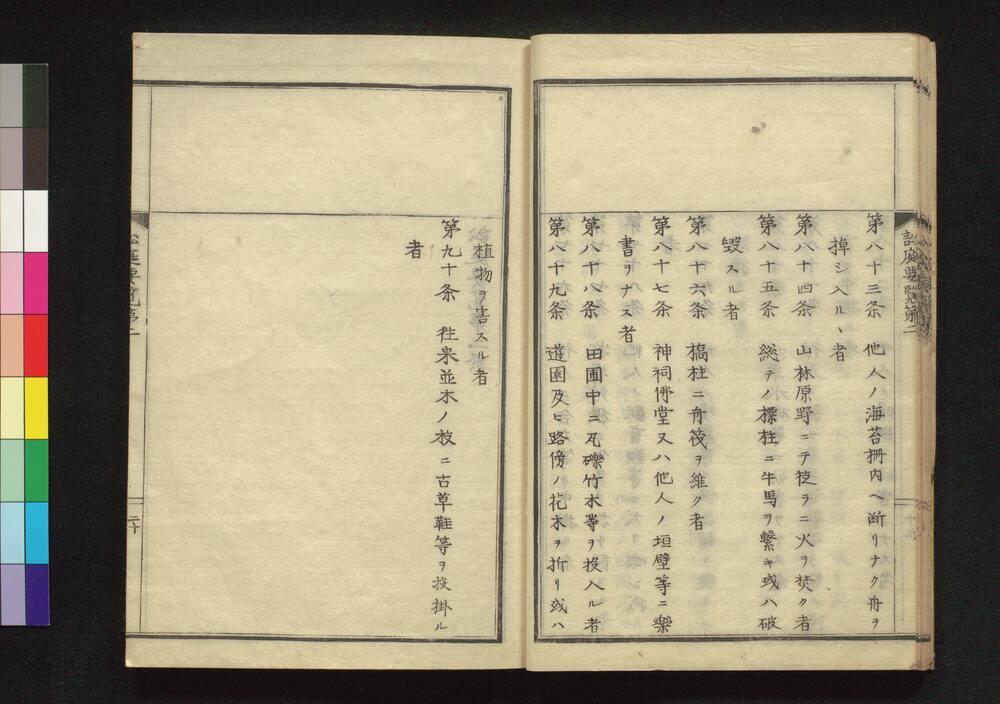 訟庭要覧第二
第八十三条　他人ノ海苔柵内ヘ断リナク舟ヲ
掉シ入ルヽ者
第八十四条　山林原野ニテ徒ラニ火ヲ焚ク者
第八十五条　総テノ標柱ニ牛馬ヲ繋キ或ハ破
毀スル者
第八十六条　橋柱ニ舟筏ヲ維ク者
第八十七条　神祠佛堂又ハ他人ノ垣壁等ニ樂
書ヲナス者
第八十八条　田圃中ニ瓦礫竹木等ヲ投入ル者
第八十九条　遊園及ヒ路傍ノ花木ヲ折リ或ハ
植物ヲ害スル者
第九十条　徃来並木ノ枝ニ古草鞋等ヲ投掛ル
者
訟庭要覧第二
二十